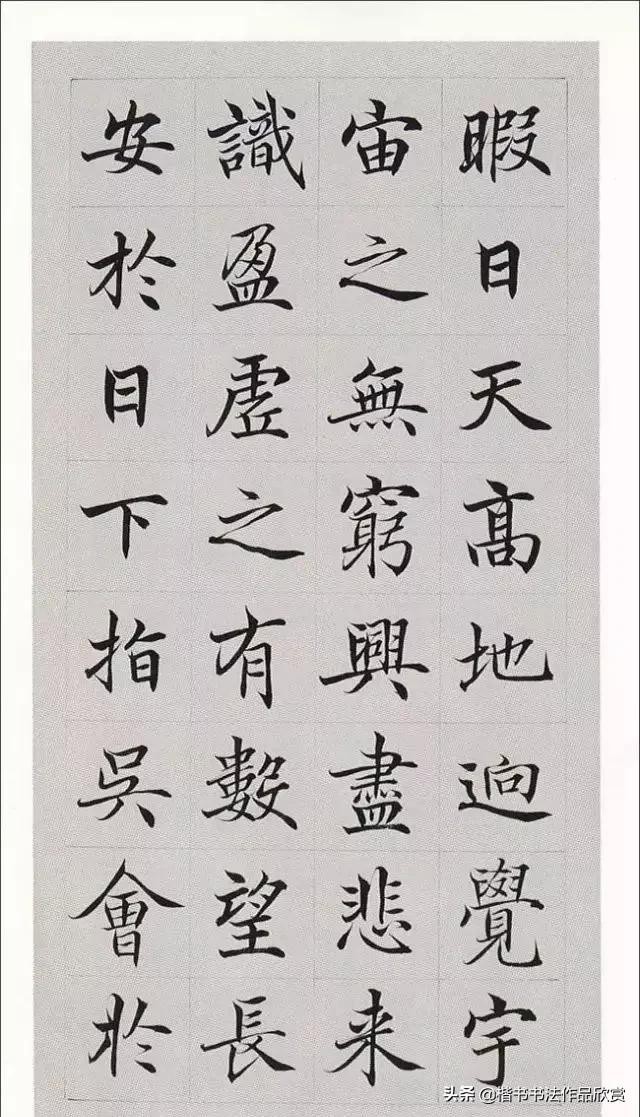 暇日天髙地逈覺宇
宙之無窮興盡悲来
識盈虚之有數望長
安於日下指吳會於
头条 @楷书书法作品欣赏